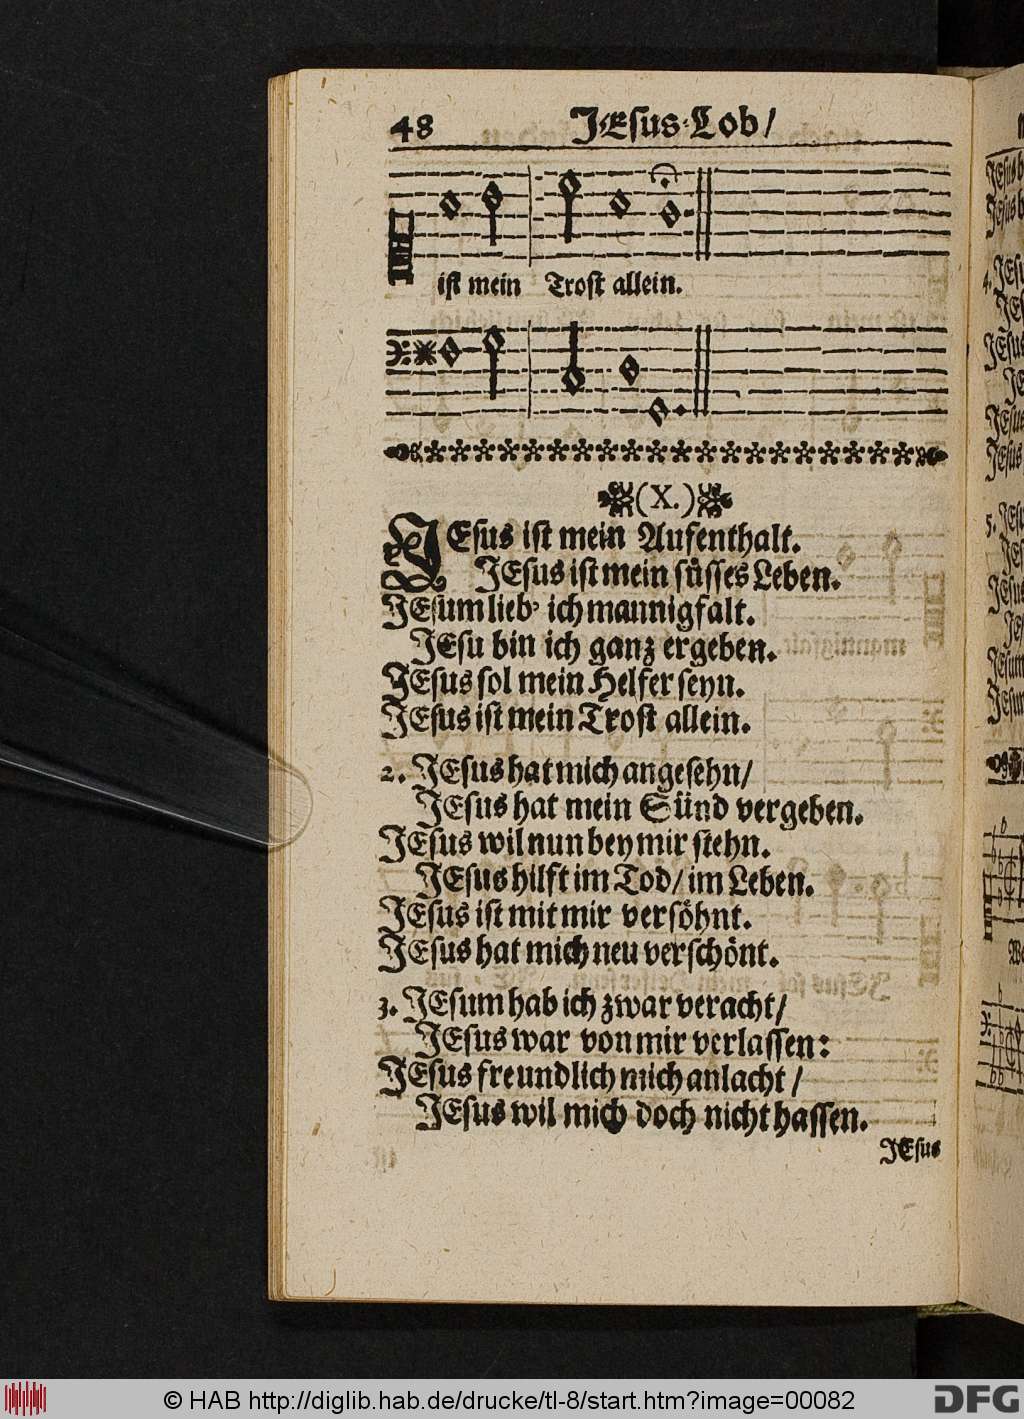 48 JEsus-Lob/
ist mein Trost allein.
(X.)
JEsus ist mein Aufenthalt.
JEsus ist mein süsses Leben.
JEsum lieb' ich mannigfalt.
JEsu bin ich ganz ergeben.
JEsus sol mein Helfer seyn.
JEsus ist mein Trost allein.
2. JEsus hat mich angesehn/
JEsus hat mein Sünd vergeben.
JEsus wil nun bey mir stehn.
JEsus hilft im Tod/ im Leben.
JEsus ist mit mir versöhnt.
JEsus hat mich neu verschönt.
3. JEsum hab ich zwar veracht/
JEsus war von mir verlassen:
JEsus freundlich mich anlacht/
JEsus wil mich doch nicht hassen.
JEsus
© HAB http://diglib.hab.de/drucke/tl-8/start.htm?image=00082
DFG